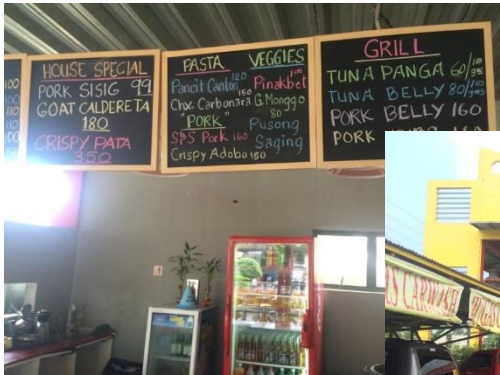 100
100
110
110
HOUSE SPECIAL
PORK SISIG 99
GOAT CALDERETA
180
CRISPY PATA
350
PASTA
Pancit Canton 120
Chix. Carbonara 150
"PORK"
S&S Pork 160
Crispy Adobo 150
VEGGIES
Pinakbet 100
G. Monggo
80
Pusong
Saging
GRILL
TUNA PANGA 60/
TUNA BELLY 80/
PORK BELLY 160
PORK
CARWASH